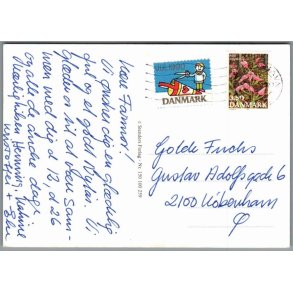 Kære Farmor!
Vi ønsker dig en glædelig
jul og et godt Nytår. Vi
glæder os til at være sam-
men med dig d. 26
og alle de andre dage.
Kærlig hilsen Henning,
JUL 1990
DANMARK
DANMARK
© Stenders Forlag. Nr. 190 100 259
Golde Fuchs
Gustav Adolfsgade 6
2100 København
Ø